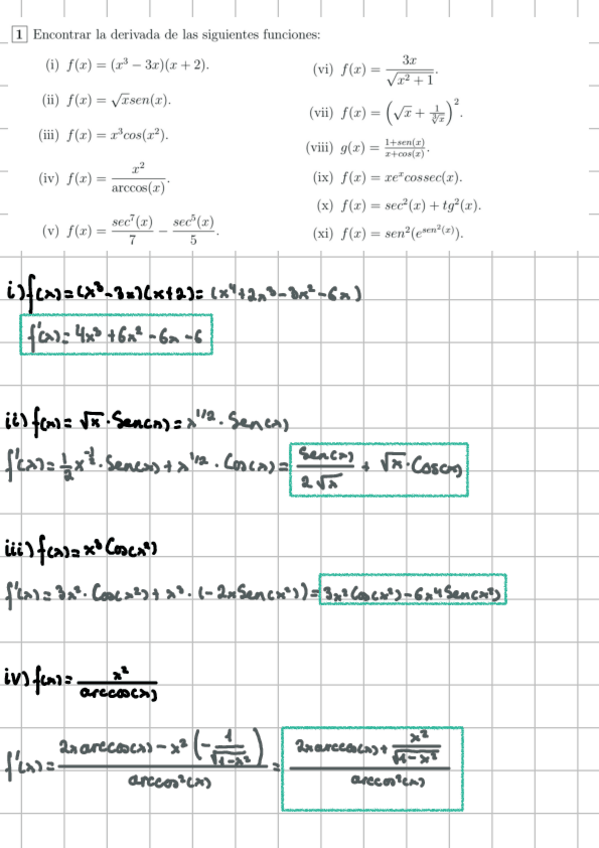 1 Encontrar la derivada de las siguientes funciones:
(i) f(x) = (x³ − 3x)(x + 2).
(ii) f(x) = √x sen(x).
(iii) f(x) = x³cos(x²).
(iv) f(x) = x²/arccos(x).
(v) f(x) = sec⁷(x)/7 − sec⁵(x)/5.
(vi) f(x) = 3x/√(x² + 1).
(vii) f(x) = (√x + 1/∛x)².
(viii) g(x) = (1+sen(x))/(x+cos(x)).
(ix) f(x) = xeˣcossec(x).
(x) f(x) = sec²(x) + tg²(x).
(xi) f(x) = sen²(e^(sen²(x))).
i) f(x) = (x³ − 3x)(x+2) = (x⁴ + 2x³ − 3x² − 6x)
f'(x) = 4x³ + 6x² − 6x − 6
ii) f(x) = √x · Sen(x) = x^(1/2) · Sen(x)
f'(x) = 1/2 x^(-1/2) · Sen(x) + x^(1/2) · Cos(x) = Sen(x)/(2√x) + √x · Cos(x)
iii) f(x) = x³ Cos(x²)
f'(x) = 3x² · Cos(x²) + x³ · (−2x Sen(x²)) = 3x² Cos(x²) − 6x⁴ Sen(x²)
iv) f(x) = x²/arccos(x)
f'(x) = (2x arccos(x) − x² (−1/√(1−x²)))/arccos²(x) = (2x arccos(x) + x²/√(1−x²))/arccos²(x)